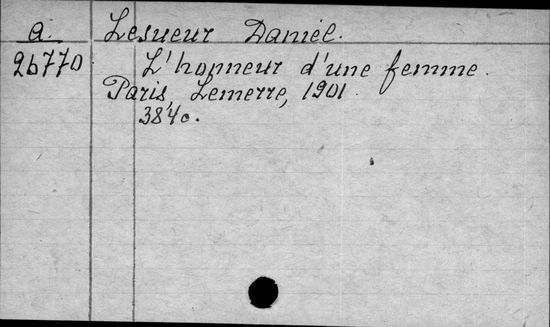 a. Lesueur Daniel.
26770 L'honneur d'une femme.
Paris, Lemerre, 1901.
384 c.